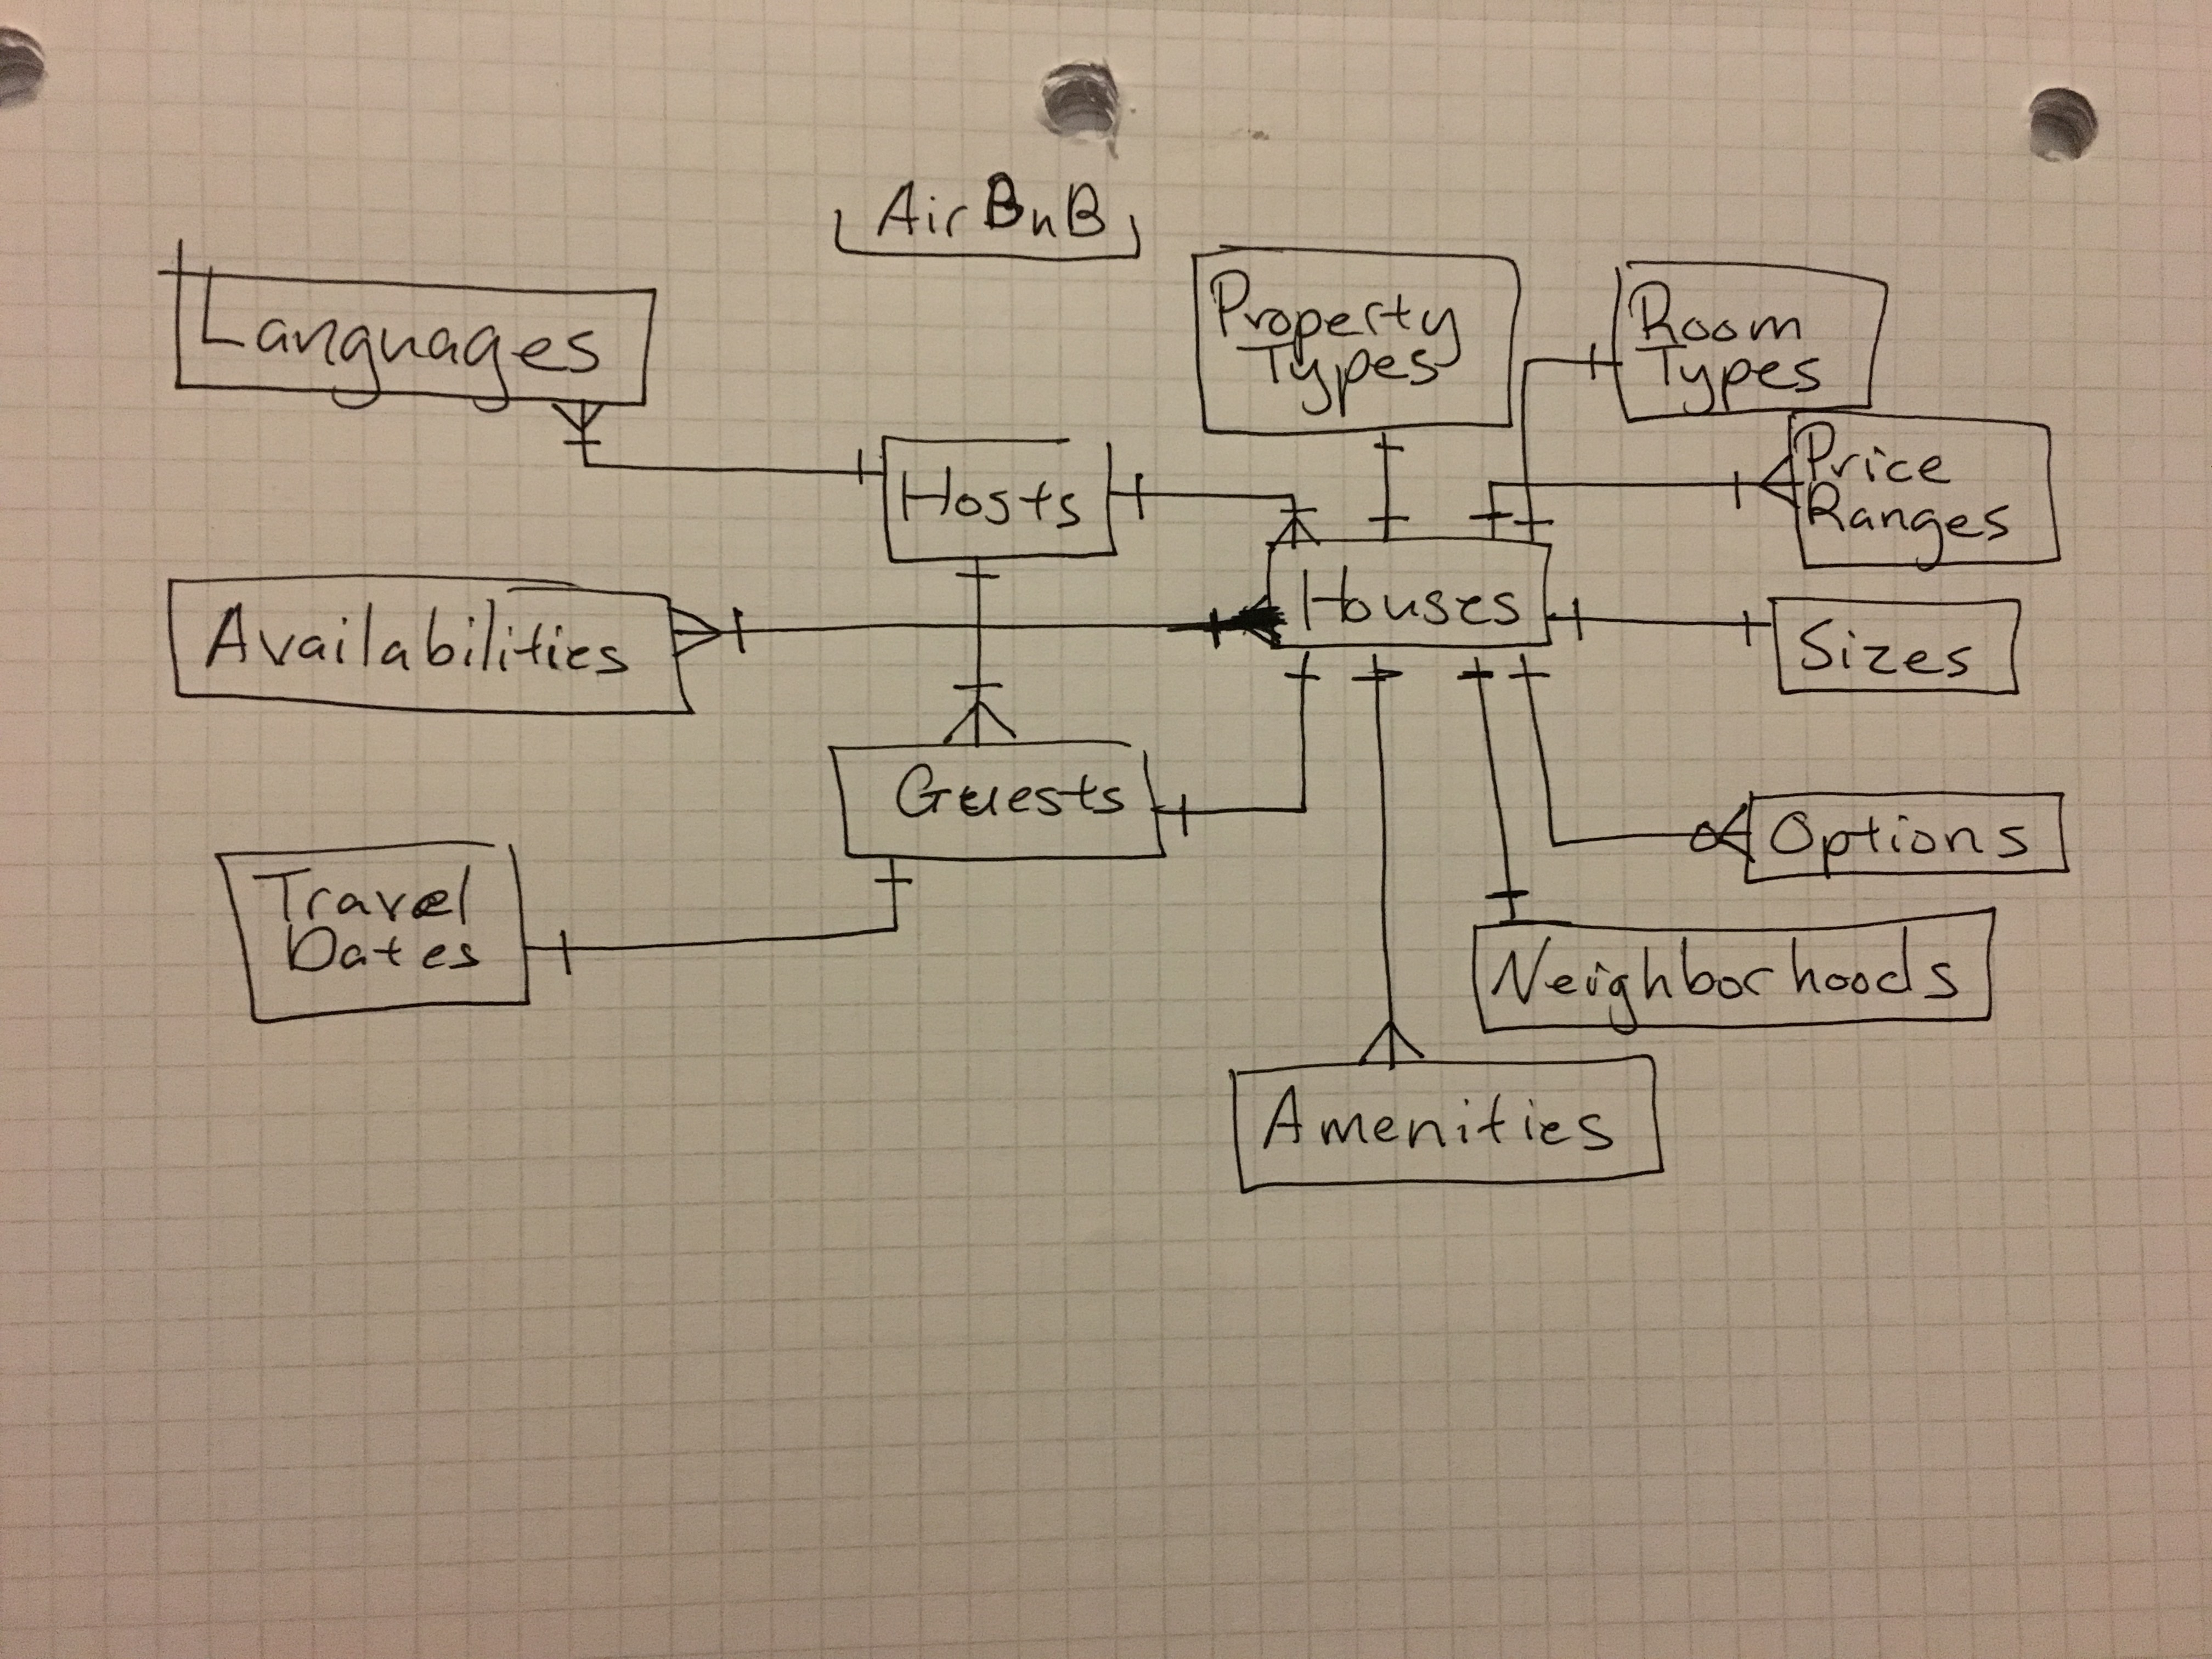 AirBnB
Languages
Property
Types
Room
Types
Hosts
Price
Ranges
Availabilities
Houses
Sizes
Guests
Options
Travel
Dates
Neighborhoods
Amenities